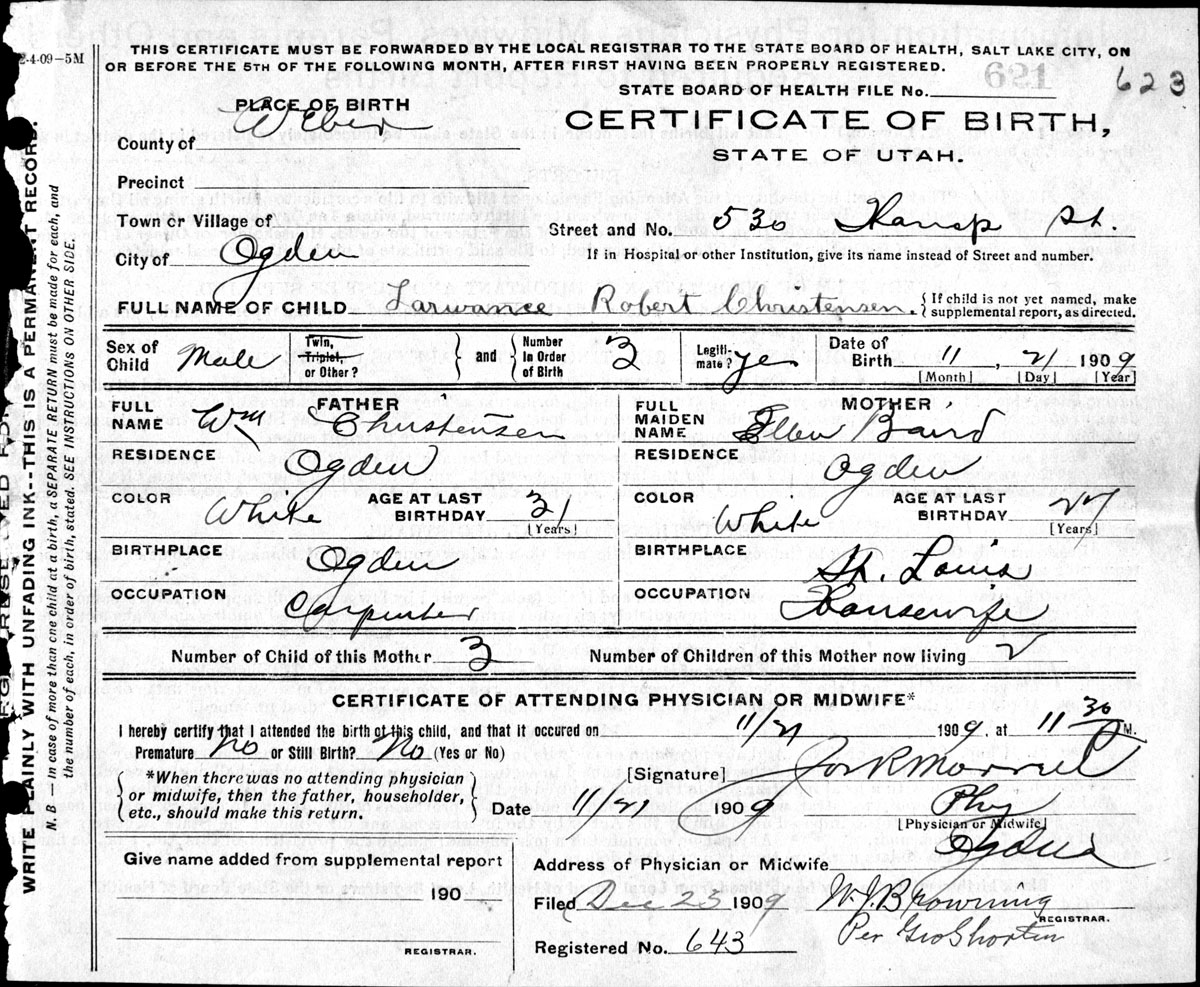 2-4-09-5M
THIS CERTIFICATE MUST BE FORWARDED BY THE LOCAL REGISTRAR TO THE STATE BOARD OF HEALTH, SALT LAKE CITY, ON
OR BEFORE THE 5TH OF THE FOLLOWING MONTH, AFTER FIRST HAVING BEEN PROPERLY REGISTERED.
621
623
STATE BOARD OF HEALTH FILE No.
PLACE OF BIRTH
CERTIFICATE OF BIRTH,
STATE OF UTAH.
County of Weber
Precinct
Town or Village of
Street and No. 530 St.
City of Ogden
If in Hospital or other Institution, give its name instead of Street and number.
FULL NAME OF CHILD Larwance Robert Christensen. { If child is not yet named, make supplemental report, as directed.
Sex of Child Male Twin, Triplet, or Other? } and { Number in Order of Birth 3 Legiti-mate? yes Date of Birth 11, 21 1909
[Month] [Day] [Year]
FATHER
FULL NAME Wm Christensen
RESIDENCE Ogden
COLOR White AGE AT LAST BIRTHDAY 31
[Years]
BIRTHPLACE Ogden
OCCUPATION Carpenter
MOTHER
FULL MAIDEN NAME Ellen Baird
RESIDENCE Ogden
COLOR White AGE AT LAST BIRTHDAY 27
[Years]
BIRTHPLACE St. Louis
OCCUPATION Housewife
Number of Child of this Mother 3 Number of Children of this Mother now living 2
CERTIFICATE OF ATTENDING PHYSICIAN OR MIDWIFE*
I hereby certify that I attended the birth of this child, and that it occured on 11/21 1909, at 11 30 P M.
Premature No or Still Birth? No (Yes or No)
{ *When there was no attending physician
or midwife, then the father, householder,
etc., should make this return. }
[Signature] Jos R Morrell
Date 11/21 1909 Phy
[Physician or Midwife]
Give name added from supplemental report
190
REGISTRAR.
Address of Physician or Midwife Ogden
Filed Dec 23 1909 W. J. Browning
REGISTRAR.
Registered No. 643 Per Geo Shorten
WRITE PLAINLY WITH UNFADING INK--THIS IS A PERMANENT RECORD.
N. B — In case of more than one child at a birth, a SEPARATE RETURN must be made for each, and
the number of each, in order of birth, stated. SEE INSTRUCTIONS ON OTHER SIDE.